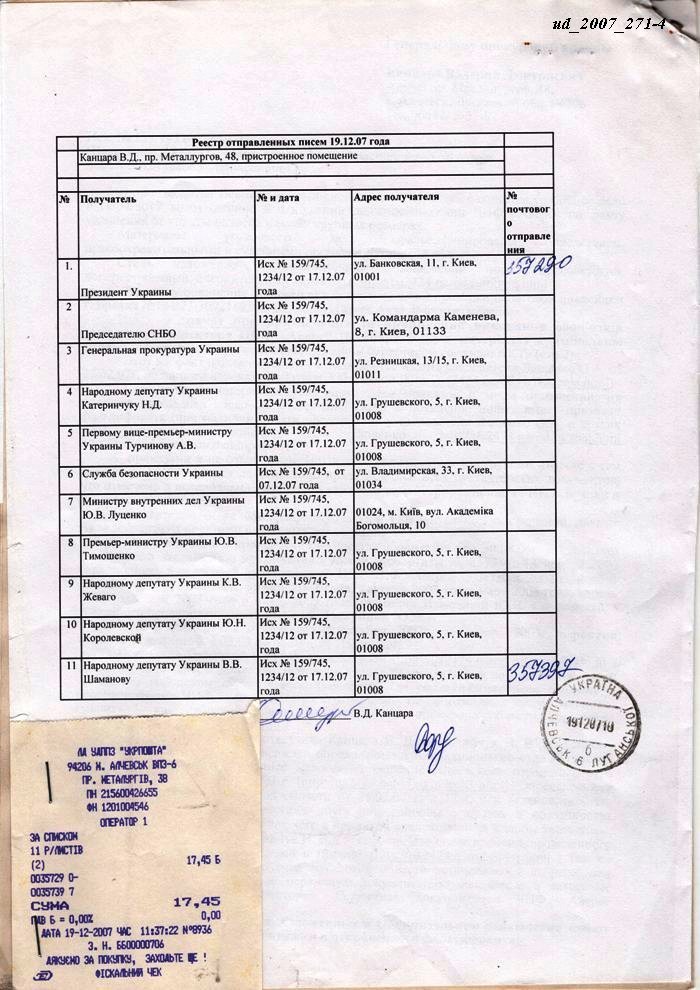 ud_2007_271-4
Реестр отправленных писем 19.12.07 года
Канцара В.Д., пр. Металлургов, 48, пристроенное помещение
№ Получатель № и дата Адрес получателя № почтового отправления
1. Президент Украины Исх № 159/745, 1234/12 от 17.12.07 года ул. Банковская, 11, г. Киев, 01001 357290
2 Председателю СНБО Исх № 159/745, 1234/12 от 17.12.07 года ул. Командарма Каменева, 8, г. Киев, 01133
3 Генеральная прокуратура Украины Исх № 159/745, 1234/12 от 17.12.07 года ул. Резницкая, 13/15, г. Киев, 01011
4 Народному депутату Украины Катеринчуку Н.Д. Исх № 159/745, 1234/12 от 17.12.07 года ул. Грушевского, 5, г. Киев, 01008
5 Первому вице-премьер-министру Украины Турчинову А.В. Исх № 159/745, 1234/12 от 17.12.07 года ул. Грушевского, 5, г. Киев, 01008
6 Служба безопасности Украины Исх № 159/745, от 07.12.07 года ул. Владимирская, 33, г. Киев, 01034
7 Министру внутренних дел Украины Ю.В. Луценко Исх № 159/745, 1234/12 от 17.12.07 года 01024, м. Київ, вул. Академіка Богомольця, 10
8 Премьер-министру Украины Ю.В. Тимошенко Исх № 159/745, 1234/12 от 17.12.07 года ул. Грушевского, 5, г. Киев, 01008
9 Народному депутату Украины К.В. Жеваго Исх № 159/745, 1234/12 от 17.12.07 года ул. Грушевского, 5, г. Киев, 01008
10 Народному депутату Украины Ю.Н. Королевской Исх № 159/745, 1234/12 от 17.12.07 года ул. Грушевского, 5, г. Киев, 01008
11 Народному депутату Украины В.В. Шаманову Исх № 159/745, 1234/12 от 17.12.07 года ул. Грушевского, 5, г. Киев, 01008 357397
В.Д. Канцара
УКРАЇНА
АЛЧЕВСЬК 6 ЛУГАНСЬКОЇ
191207 10
б
ЛА УАППЗ "УКРПОШТА"
94206 М. АЛЧЕВСЬК ВПЗ-6
ПР. МЕТАЛУРГІВ, 38
ПН 215600426655
ФН 1201004546
ОПЕРАТОР 1
ЗА СПИСКОМ
11 Р/ЛИСТІВ
(2) 17,45 Б
0035729 0-
0035739 7
СУМА 17,45
ПДВ Б = 0,00% 0,00
ДАТА 19-12-2007 ЧАС 11:37:22 №8936
З. Н. ББ00000706
ДЯКУЄМО ЗА ПОКУПКУ, ЗАХОДЬТЕ ЩЕ !
ФІСКАЛЬНИЙ ЧЕК